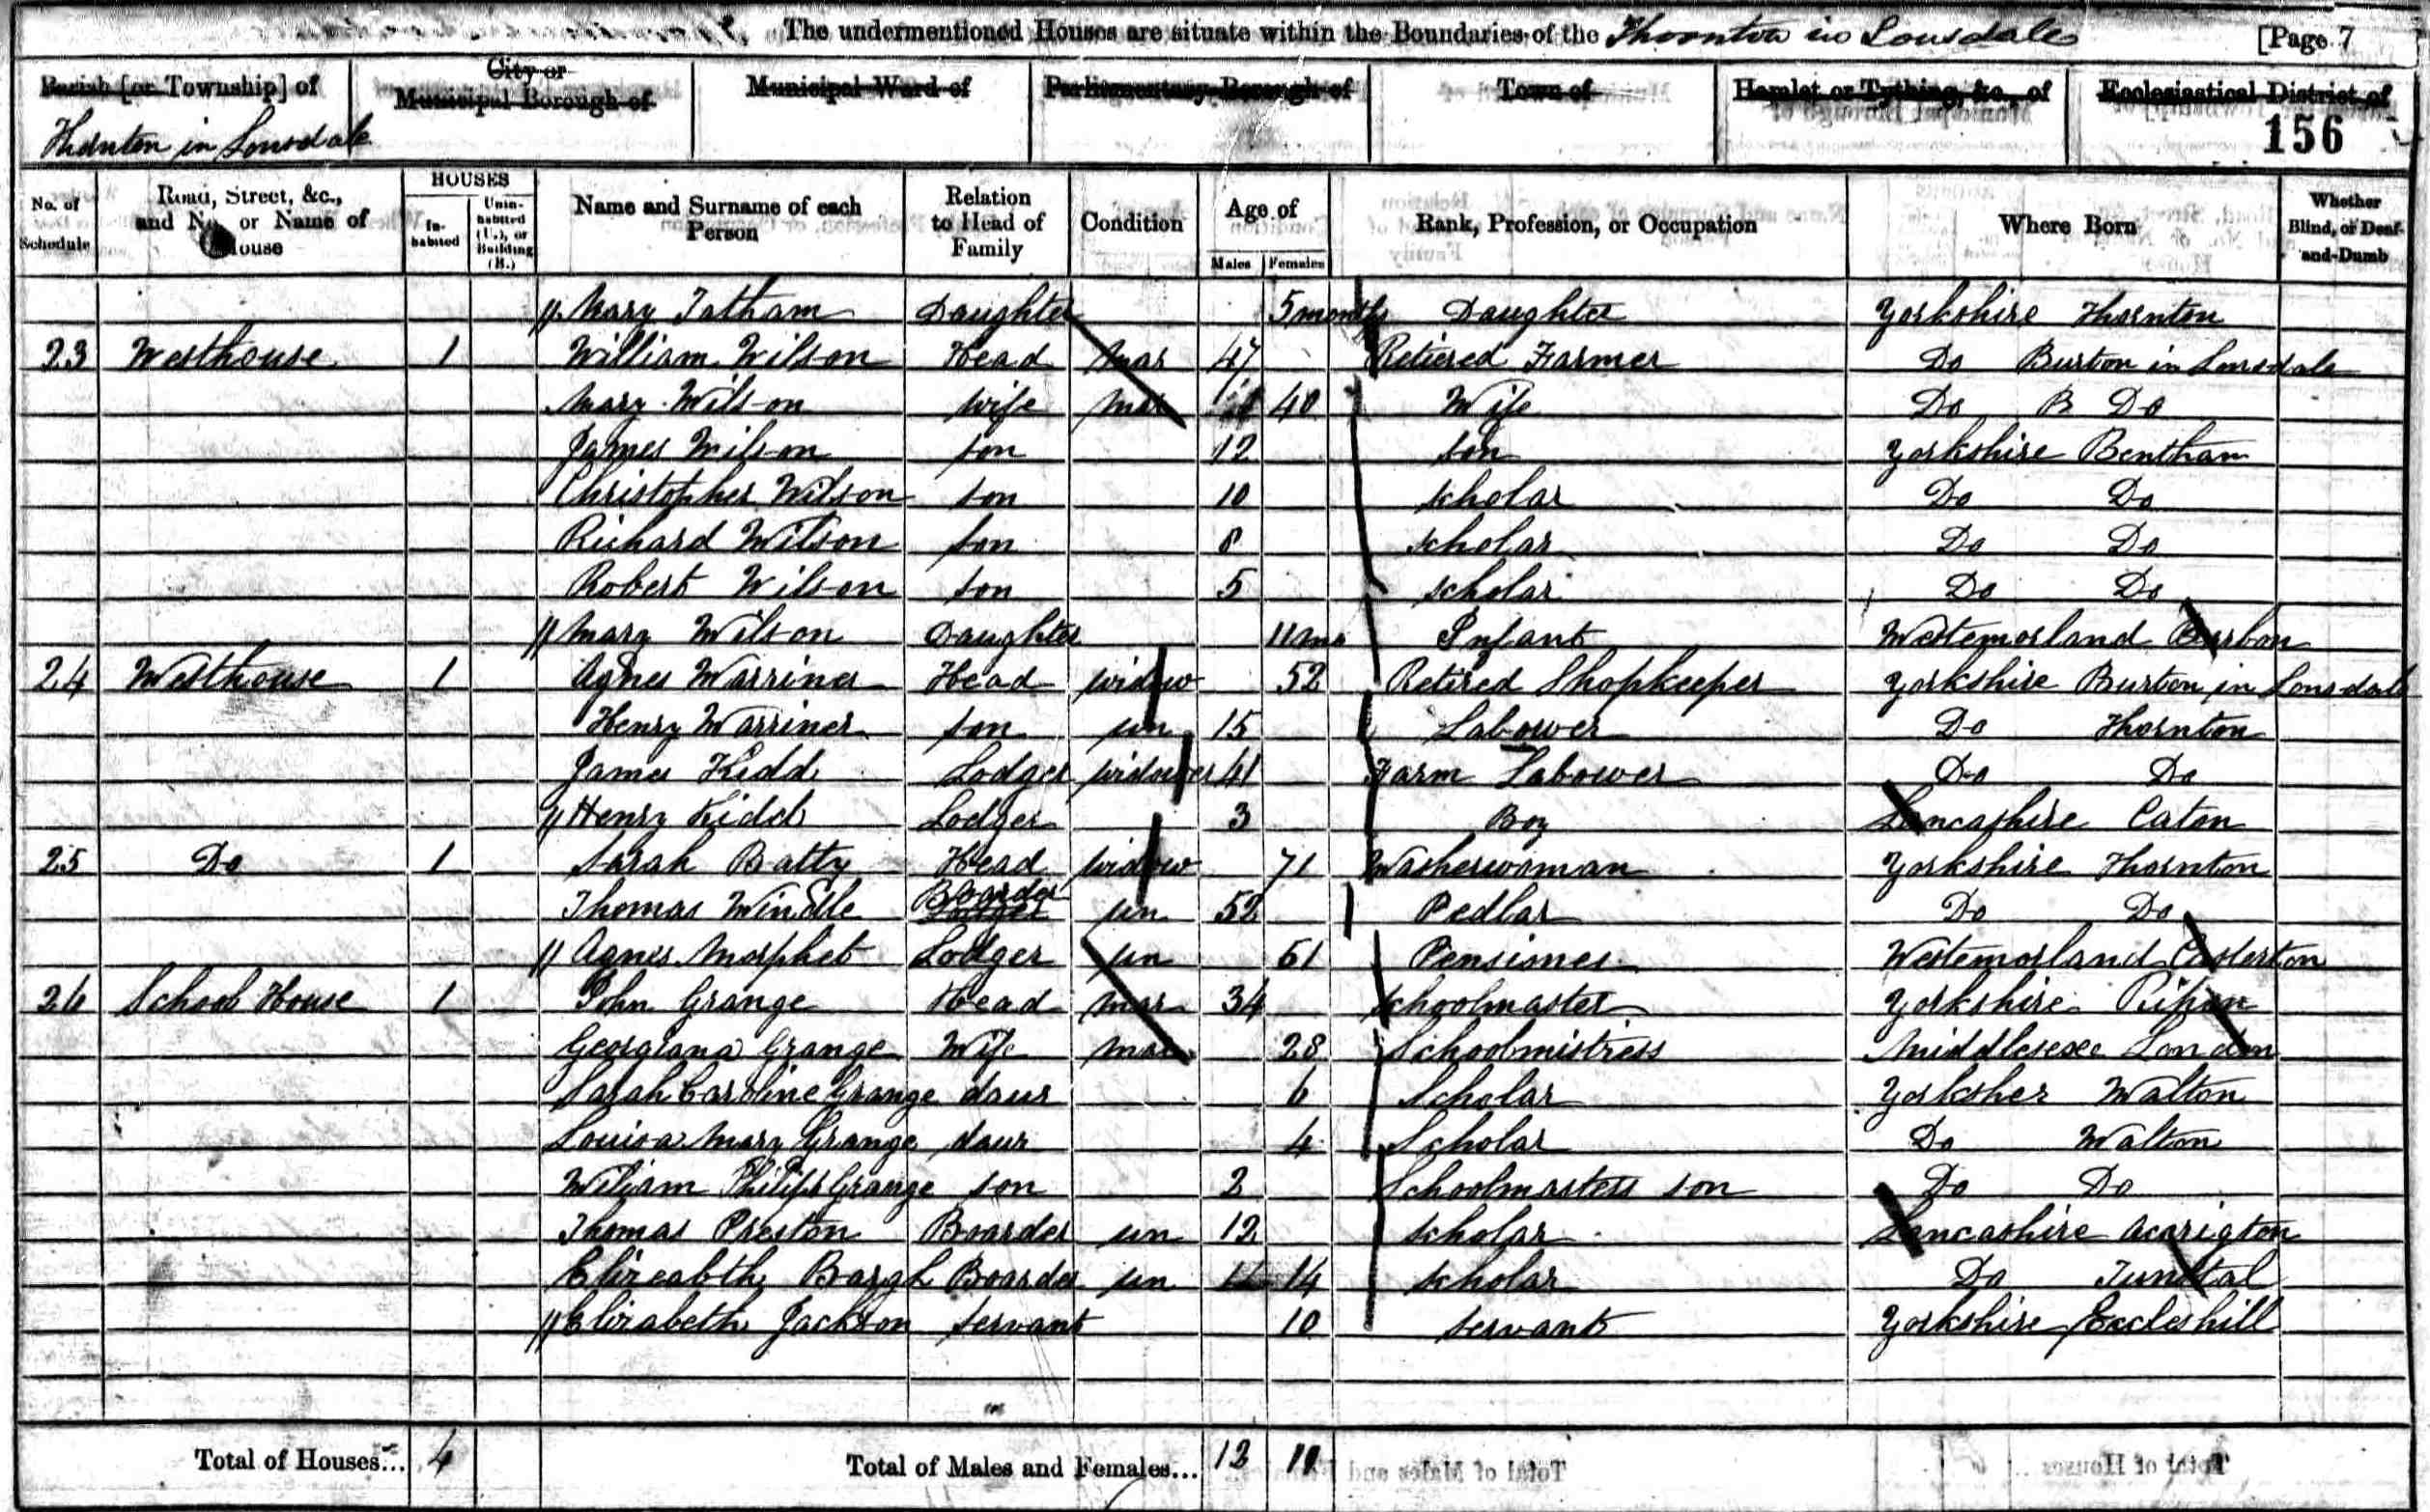 The undermentioned Houses are situate within the Boundaries of the Thornton in Lonsdale [Page 7
Parish [or Township] of City or Municipal Borough of Municipal Ward of Parliamentary Borough of Town of Hamlet or Tything, &c., of Ecclesiastical District of
Thornton in Lonsdale 156
No. of Schedule Road, Street, &c., and No. or Name of House HOUSES Inhabited Uninhabited (U.), or Building (B.) Name and Surname of each Person Relation to Head of Family Condition Age of Males Females Rank, Profession, or Occupation Where Born Whether Blind, or Deaf-and-Dumb
// Mary Tatham Daughter 5 months Daughter Yorkshire Thornton
23 Westhouse 1 William Wilson Head mar 47 Retiered Farmer Do Burton in Lonsdale
Mary Wilson wife mar 40 Wife Do B Do
James Wilson son 12 son Yorkshire Bentham
Christopher Wilson son 10 scholar Do Do
Richard Wilson son 8 scholar Do Do
Robert Wilson son 5 scholar Do Do
// Mary Wilson Daughter 11 mo Infant Westemorland Barbon
24 Westhouse 1 Agnes Warriner Head widow 52 Retired Shopkeeper Yorkshire Burton in Lonsdale
Henry Warriner son un 15 Labower Do Thornton
James Kidd Lodger widower 41 Farm Labower Do Do
// Henry Kidd Lodger 3 Boy Lancashire Caton
25 Do 1 Sarah Batty Head widow 71 Washerwoman Yorkshire Thornton
Thomas Windle Boarder Lodger un 52 Pedlar Do Do
// Agnes Morphet Lodger un 61 Pensioner Westemorland Casterton
26 School House 1 John Grange Head mar 34 Schoolmaster Yorkshire Ripon
Georgiana Grange Wife mar 28 Schoolmistress Middlesexe London
Sarah Caroline Grange daur 6 Scholar Yorksher Malton
Louisa Mary Grange daur 4 Scholar Do Malton
William Philip Grange son 2 Schoolmasters son Do Do
Thomas Preston Boarder un 12 scholar Lancashire Acarigton
Elizeabth Bargh Boarder un 14 scholar Do Tunstal
// Elizabeth Jackson servant 10 servant Yorkshire Eccleshill
Total of Houses... 4 Total of Males and Females... 12 11